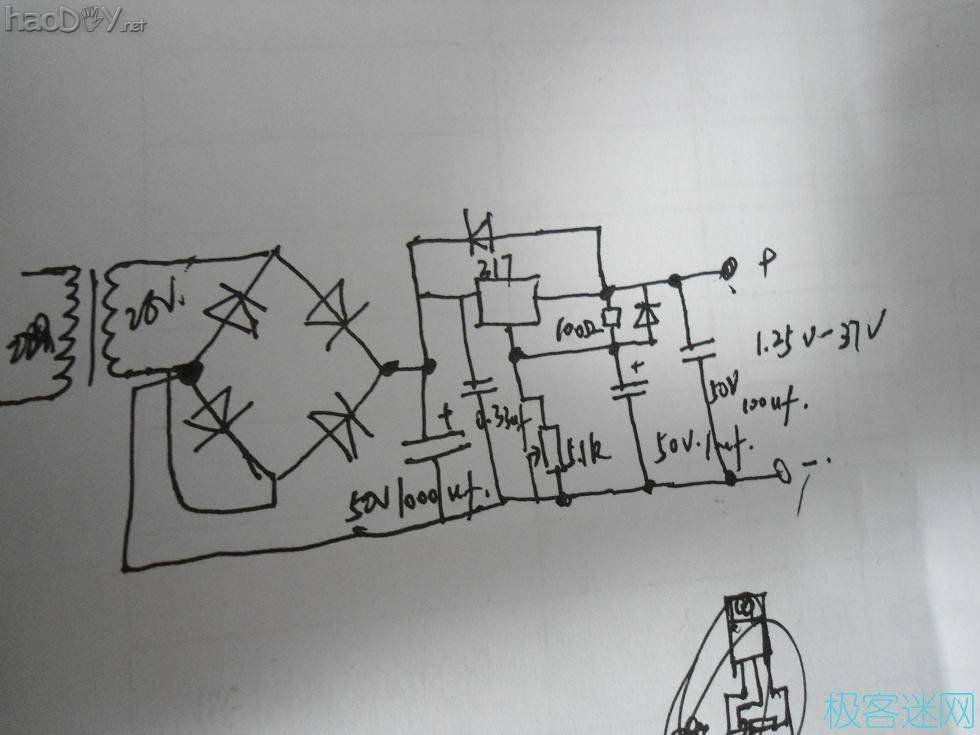 haoDIY.net
317
P
100Ω
1.25V-37V
+
+
0.33uf
50V
100uf.
5.1k
50V.1uf.
50V1000uf.
-
极客迷网